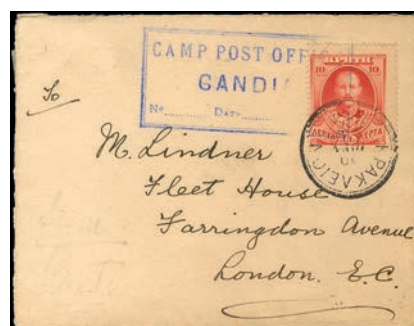 CAMP POST OFFIC
CANDI
No. Date
ΚΡΗΤΗ
10 10
ΗΡΑΚΛΕΙΟΝ
To
M. Lindner
Fleet House
Farringdon Avenue
London. E.C.